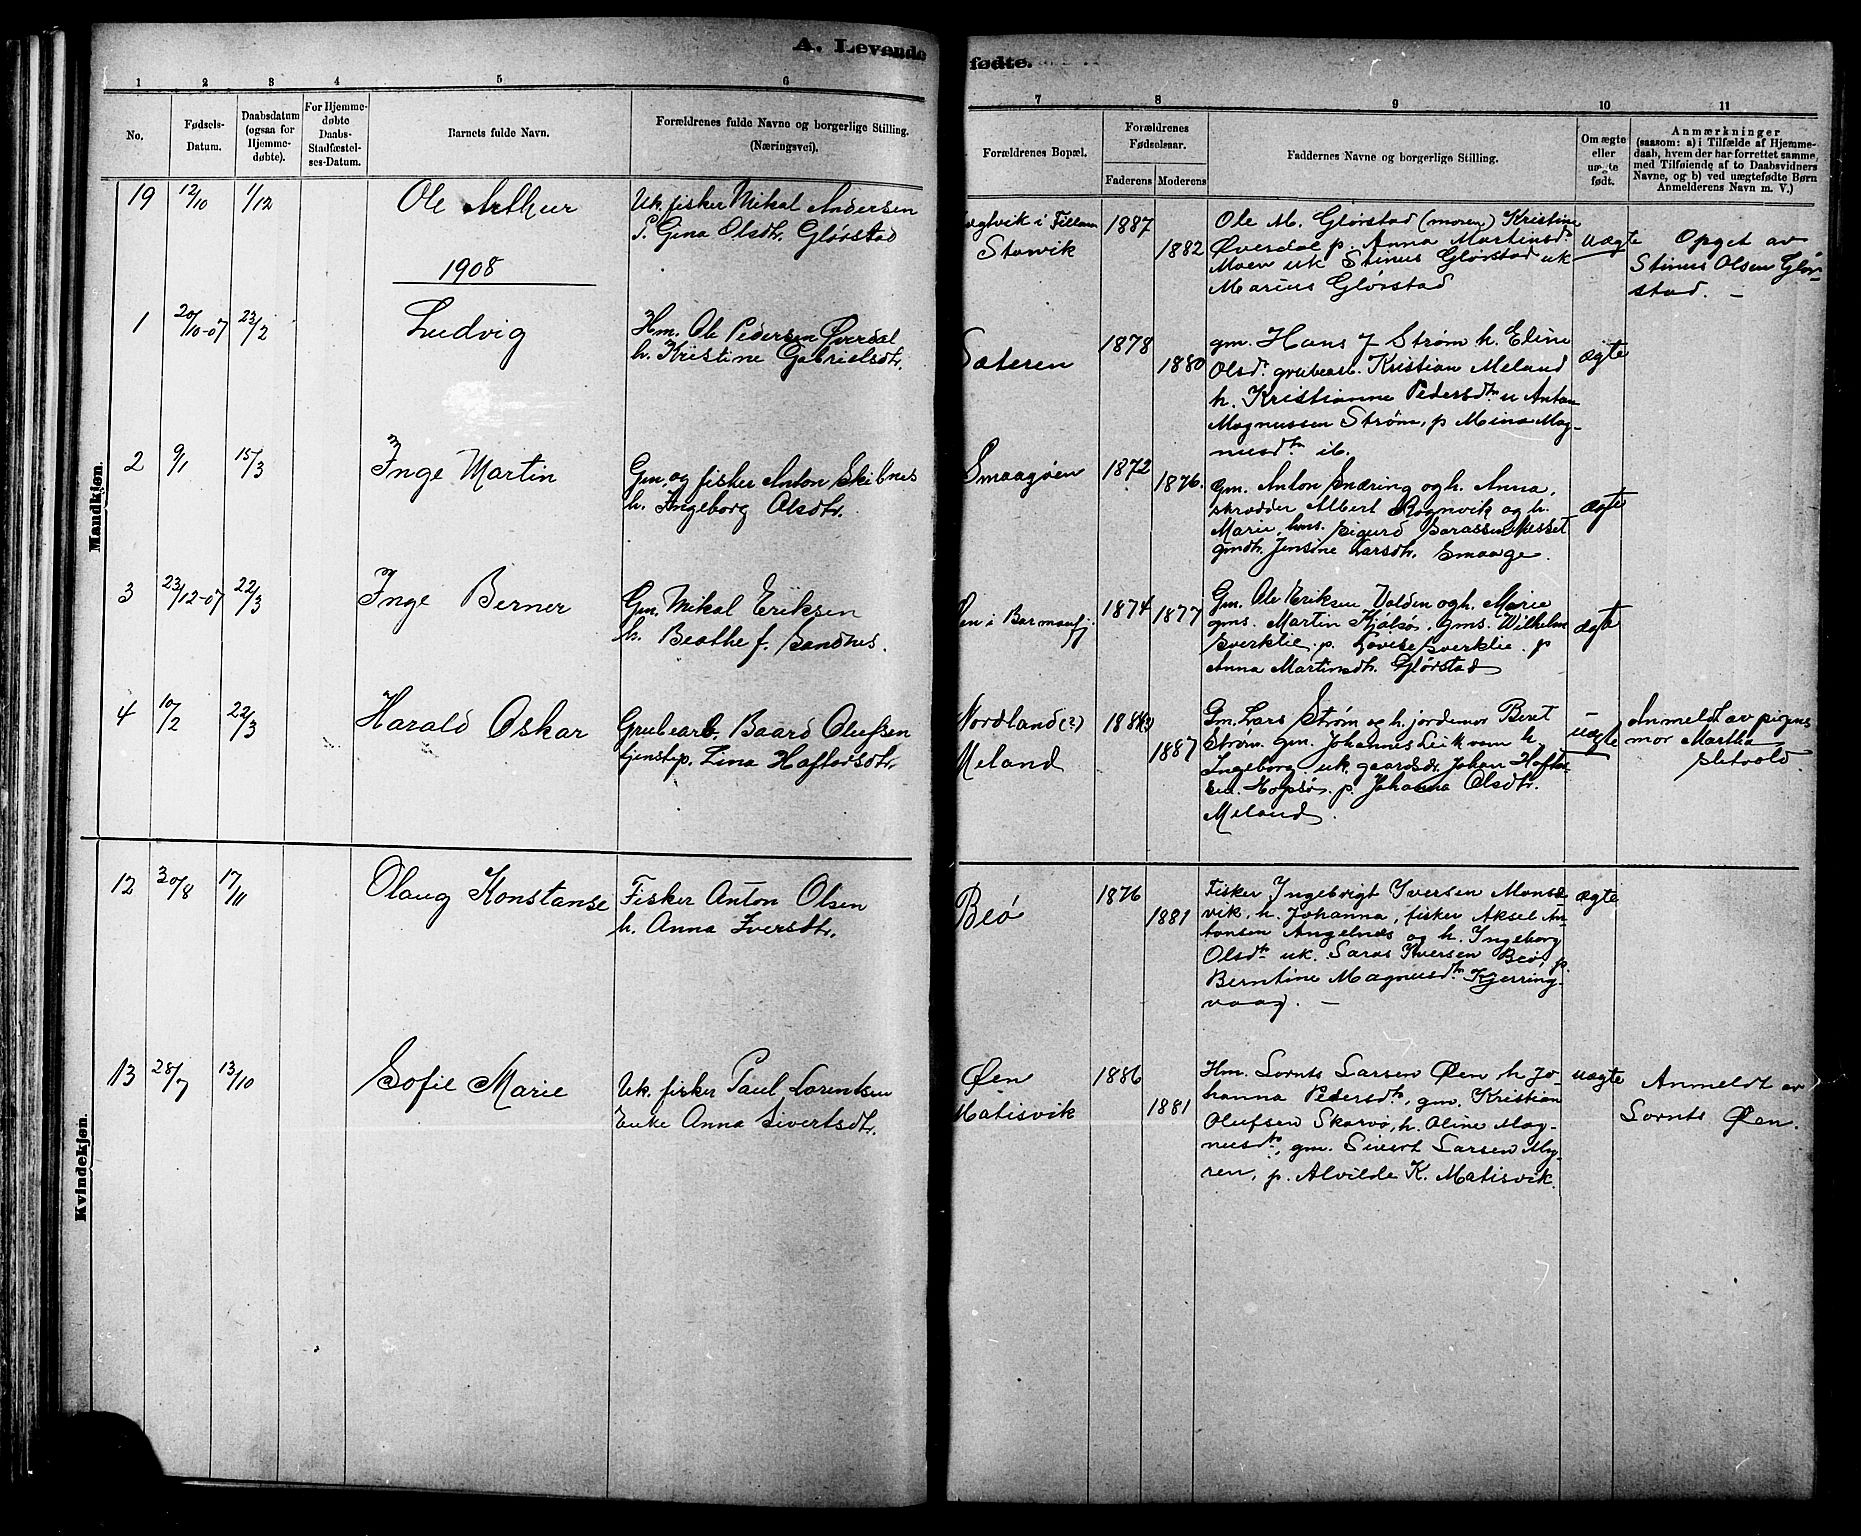 A. Levende
fødte.
1 2 3 4 5 6
7 8 9 10 11
No.
Fødsels-
Datum.
Daabsdatum
(ogsaa for
Hjemme-
døbte).
For Hjemme-
døbte
Daabs-
Stadfæstel-
ses-Datum.
Barnets fulde Navn.
Forældrenes fulde Navne og borgerlige Stilling.
(Næringsvei).
Forældrenes Bopæl.
Forældrenes
Fødselsaar.
Faderens Moderens
Faddernes Navne og borgerlige Stilling.
Om ægte
eller
uægte
født.
Anmærkninger
(saasom: a) i Tilfælde af Hjemme-
daab, hvem der har forrettet samme,
med Tilføiende af to Daabsvidners
Navne, og b) ved uægtefødte Børn
Anmelderens Navn m. V.)
Mandkjøn.
19
12/10
1/12
Ole Arthur
Uk. fisker Mikal Andersen
P. Gina Olsdtr. Glørstad
i Fillan
Storvik
1887
1882
Ole M. Glørstad (moren) Kristine
Øverdal p. Anna Martinsdtr
Moen uk Stinus Glørstad uk
Marius Glørstad
uægte
Opget av
Stinus Olsen Glør-
stad. –
1908
1
20/10-07
23/2
Ludvig
Hm. Ole Pedersen Øverdal
h. Kristine Gabrielsdtr.
Sæteren
1878
1880
gm. Hans J Strøm h. Eline
Olsdtr. grubearb. Kristian Meland
h. Kristianne Pedersdtr u Anton
Magnussen Strøm, p Mina Mag-
nusdtr ib.
ægte
2
9/1
15/3
Inge Martin
Gm. og fisker Anton Skilnes
h. Ingeborg Olsdtr.
Smaagøen
1872
1876.
Gm. Anton Snæring og h. Anna,
skrædder Albert Rognvik og h.
Marie, hus. Sigurd Nesset
gmdtr. Jensine Larsdtr. Smaage.
ægte
3
23/12-07
22/3
Inge Berner
Gm. Mikal Eriksen
h. Beathe f. Sandnes.
Øen i Barmanfj.
1874
1877
Gm. Ole Eriksen Volden og h. Marie
gms. Martin Kjølsø, Gms. Wilhelm
Sverklie. p. Lovise Sverklie. p
Anna Martinsdtr. Glørstad
ægte
4
10/2
22/3
Harald Oskar
Grubearb. Baard Olufsen
tjenstep. Lina Haftorsdtr.
Nordland (?)
Meland
1887
Gm. Lars Strøm og h. jordemor Beret
Strøm. gm. Johannes Leikvam h.
Ingeborg. uk. gaardsdr. Johan Hafto-
sen. Hopsø. p. Johanna Olsdtr.
Meland.
uægte
Anmeldt av pigens
mor Martha
Sletvold.
Kvindekjøn.
12
30/8
17/11
Olaug Konstanse
Fisker Anton Olsen
h. Anna Iversdtr.
Beø
1876
1881
Fisker Ingebrigt Iversen Mansæ-
vik, h. Johanna, fisker Aksel An-
tonsen Angelnæs og h. Ingeborg
Olsdtr uk. Saras Iversen Beø, p.
Berntine Magnusdtr Kjerring-
vaag. –
ægte
13
28/7
13/10
Sofie Marie
Uk. fisker Paul Lorentsen
Enke Anna Sivertsdtr.
Øen
Matisvik
1886
1881
Hm. Lornts Larsen Øen h Jo-
hanna Pedersdtr, gm. Kristian
Olufsen Skarvø, h. Oline Mag-
nusdtr, gm. Sivert Larsen My-
ren, p. Alvilde K. Matisvik.
uægte
Anmeldt av
Lornts Øen.